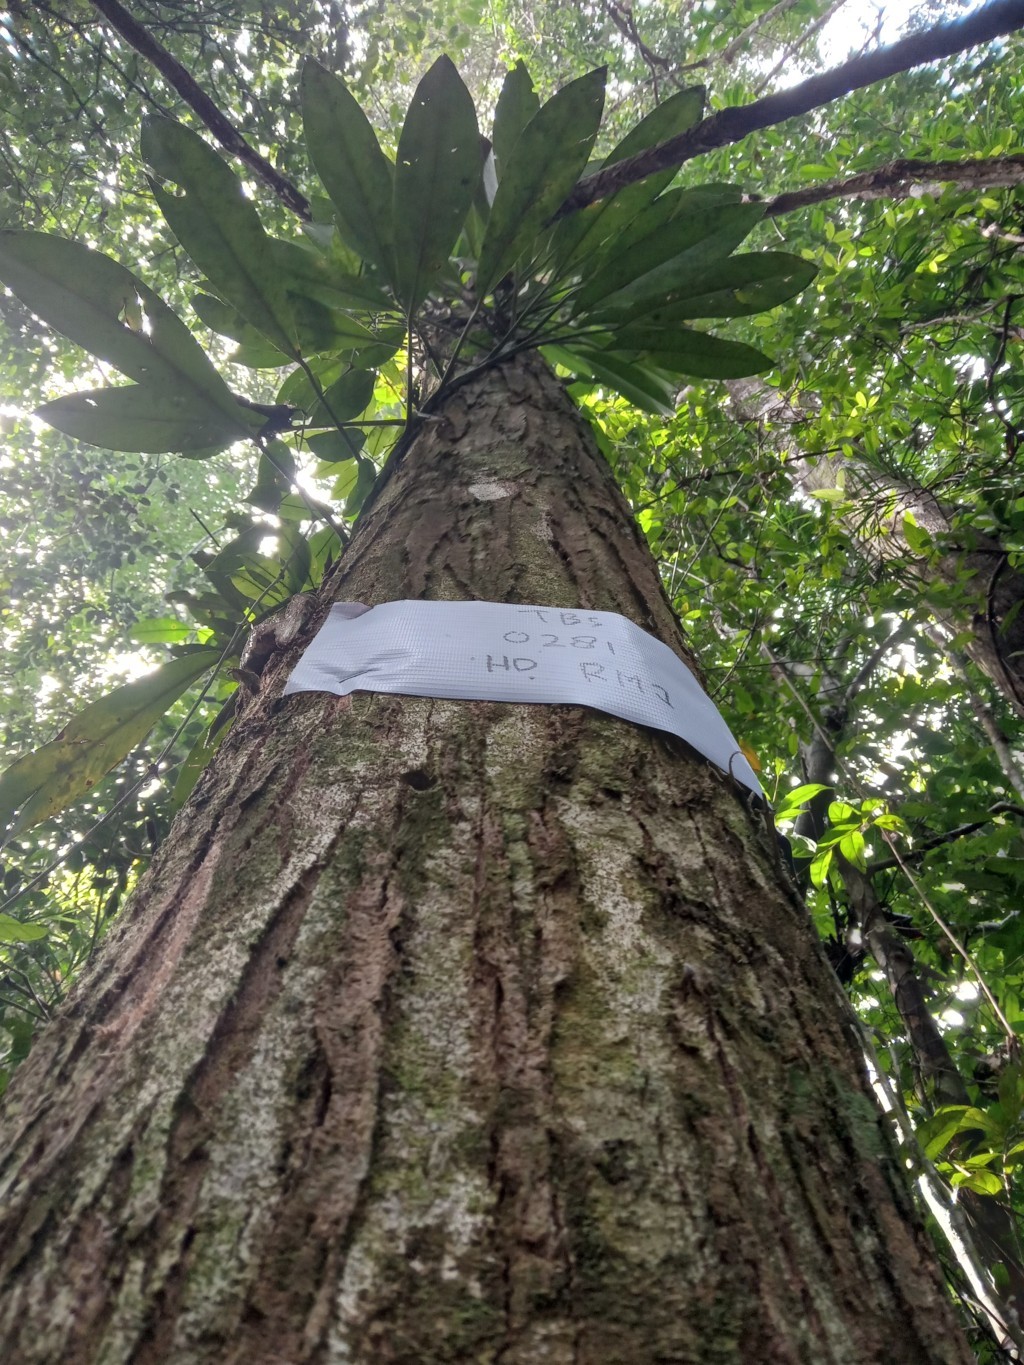 TBS
0281
HD RM2